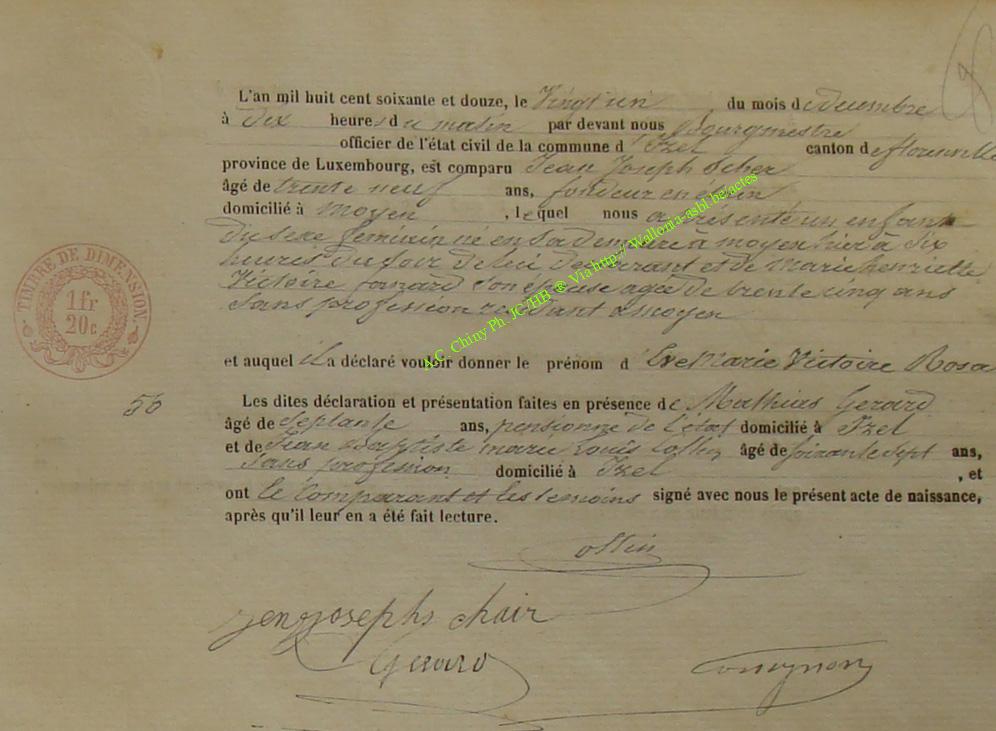 L'an mil huit cent soixante et douze, le Vingt un du mois de decembre
à dix heures du matin par devant nous Bourgmestre
officier de l'état civil de la commune d'Izel canton de florenville
province de Luxembourg, est comparu Jean Joseph
âgé de trente neuf ans, fondeur en
domicilié à moyen, lequel nous a présenté un enfant
du sexe feminin né en sa demeure à moyen hier à six
heures du soir de lui déclarant et de marie henriette
Victoire son épouse agée de trente cinq ans
sans profession résidant à moyen
et auquel il a déclaré vouloir donner le prénom d' Marie Victoire Rosa
56
Les dites déclaration et présentation faites en présence de Mathias Gerard
âgé de septante ans, pensionné de l'état domicilié à Izel
et de Jean Baptiste marie Louis Collin âgé de soixante sept ans,
sans profession domicilié à Izel, et
ont le comparant et les temoins signé avec nous le présent acte de naissance,
après qu'il leur en a été fait lecture.
Collin
Jen Joseph chair
Gerard
TIMBRE DE DIMENSION.
1 fr
20c
A.C. Chiny Ph. JC/HB ® Via http:// Wallonia-asbl.be/actes